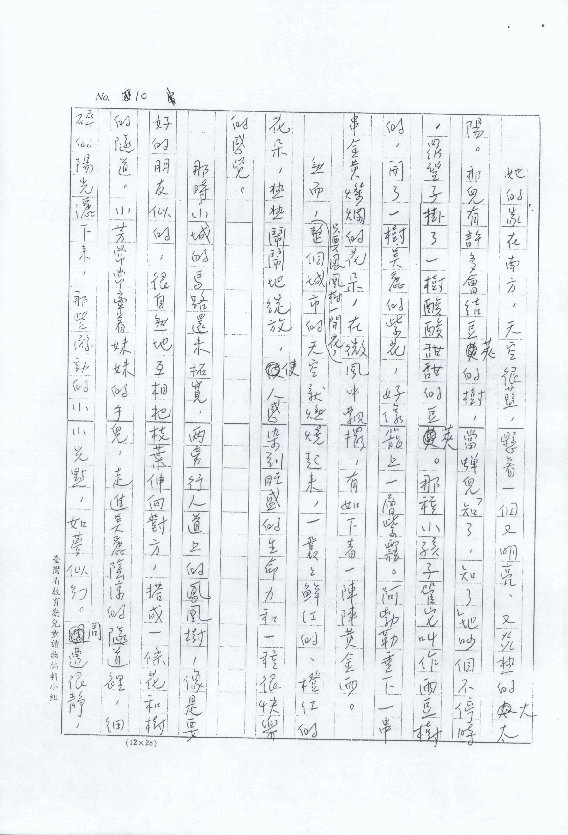 No. 10
她的家在南方，天空很藍，懸著一個又明亮、又光熱的大太
陽。那兒有許多會結豆莢的樹，當蟬兒「知了，知了」地吵個不停時
，羅望子掛了一樹酸酸甜甜的豆莢。那種小孩子管它叫作雨豆樹
的，開了一樹美麗的紫花，好像籠上一層紫霧。阿勃勒垂下一串
串金黃燦爛的花朵，在微風中飄擺，有如下著一陣陣黃金雨。
然而，只要鳳凰樹一開花，整個城市的天空就燃燒起來，一叢叢鮮紅的、橙紅的
花朵，熱熱鬧鬧地綻放，使人感染到旺盛的生命力和一種很快樂
的感覺。
那時小城的馬路還未拓寬，兩旁行人道上的鳳凰樹，像是要
好的朋友似的，很自然地互相把枝葉伸向對方，搭成一條花和樹
的隧道。小芳常常牽著妹妹的手兒，走進美麗陰涼的隧道裡，細
碎的陽光灑下來，那些游動的小小光點，如夢似幻。周邊很靜，
臺灣省教育廳兒童讀物編輯小組
(12×20)